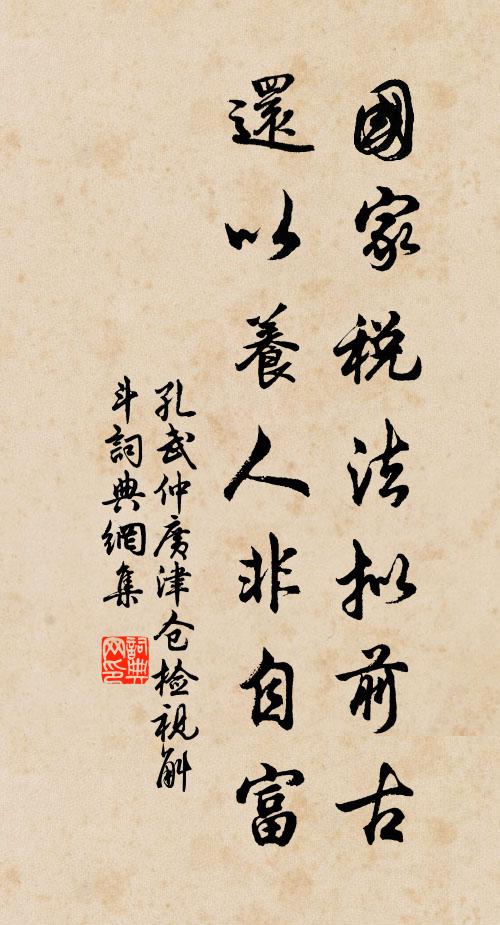 國家税法拟前古
還以養人非自富
孔武仲廣津仓检視斛
斗詞典網集
詞典网印